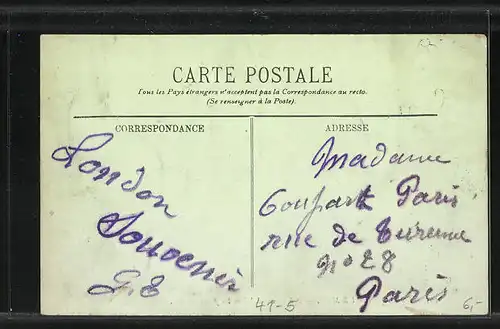 CARTE POSTALE
Tous les Pays étrangers n'acceptent pas la Correspondance au recto.
(Se renseigner à la Poste).
CORRESPONDANCE
London
Souvenir
G.E
ADRESSE
Madame
Goupart Paris
rue de Turenne
No 28
Paris
49-5
6,-